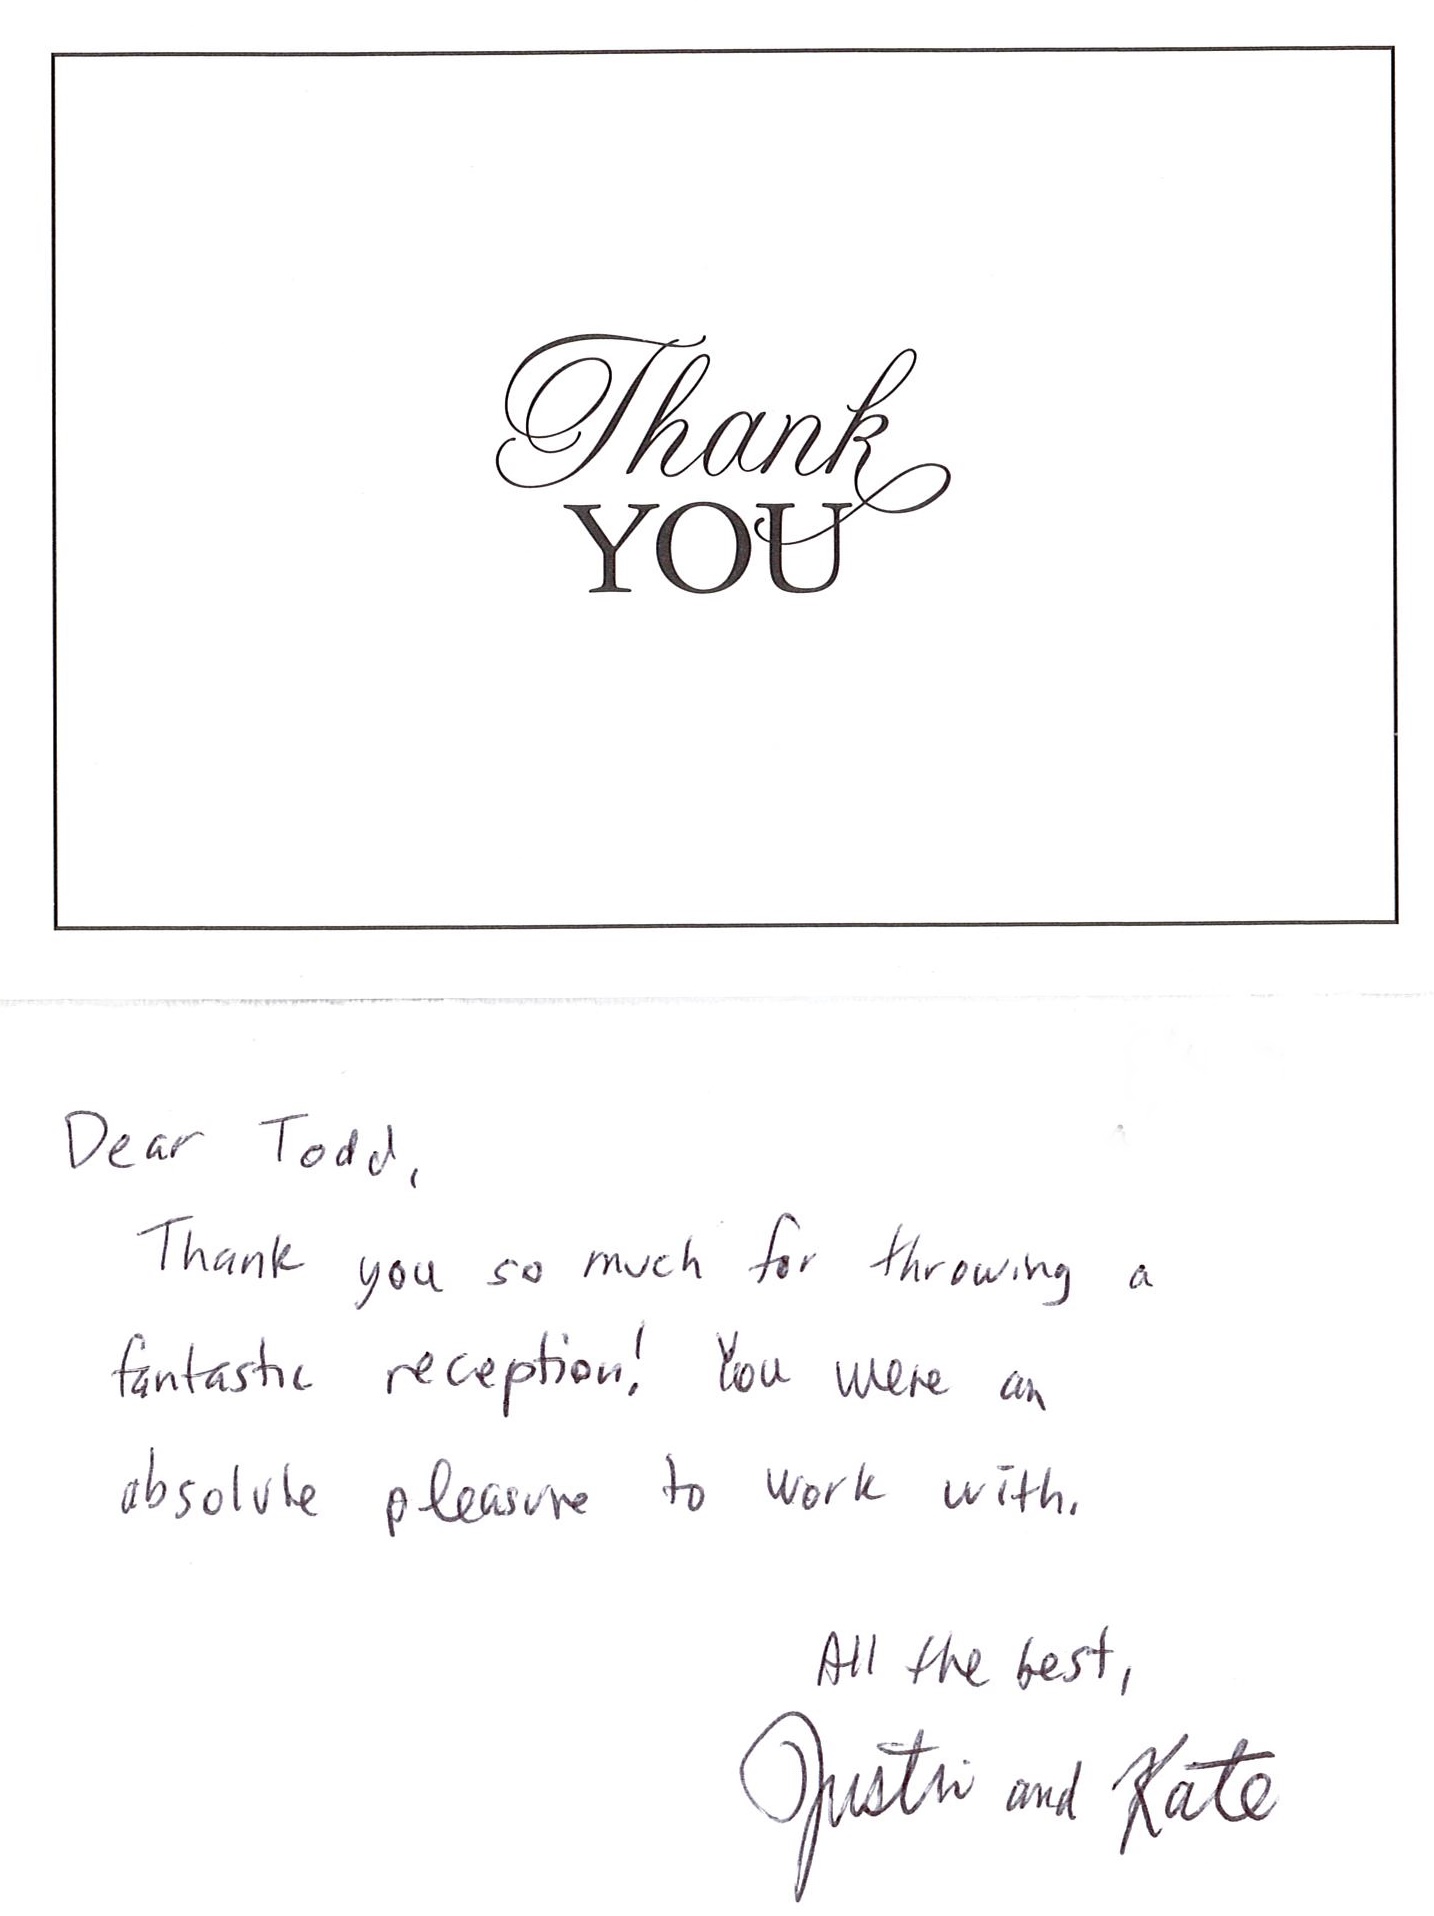 Thank
YOU
Dear Todd,
Thank you so much for throwing a
fantastic reception! You were an
absolute pleasure to work with.
All the best,
Justin and Kate